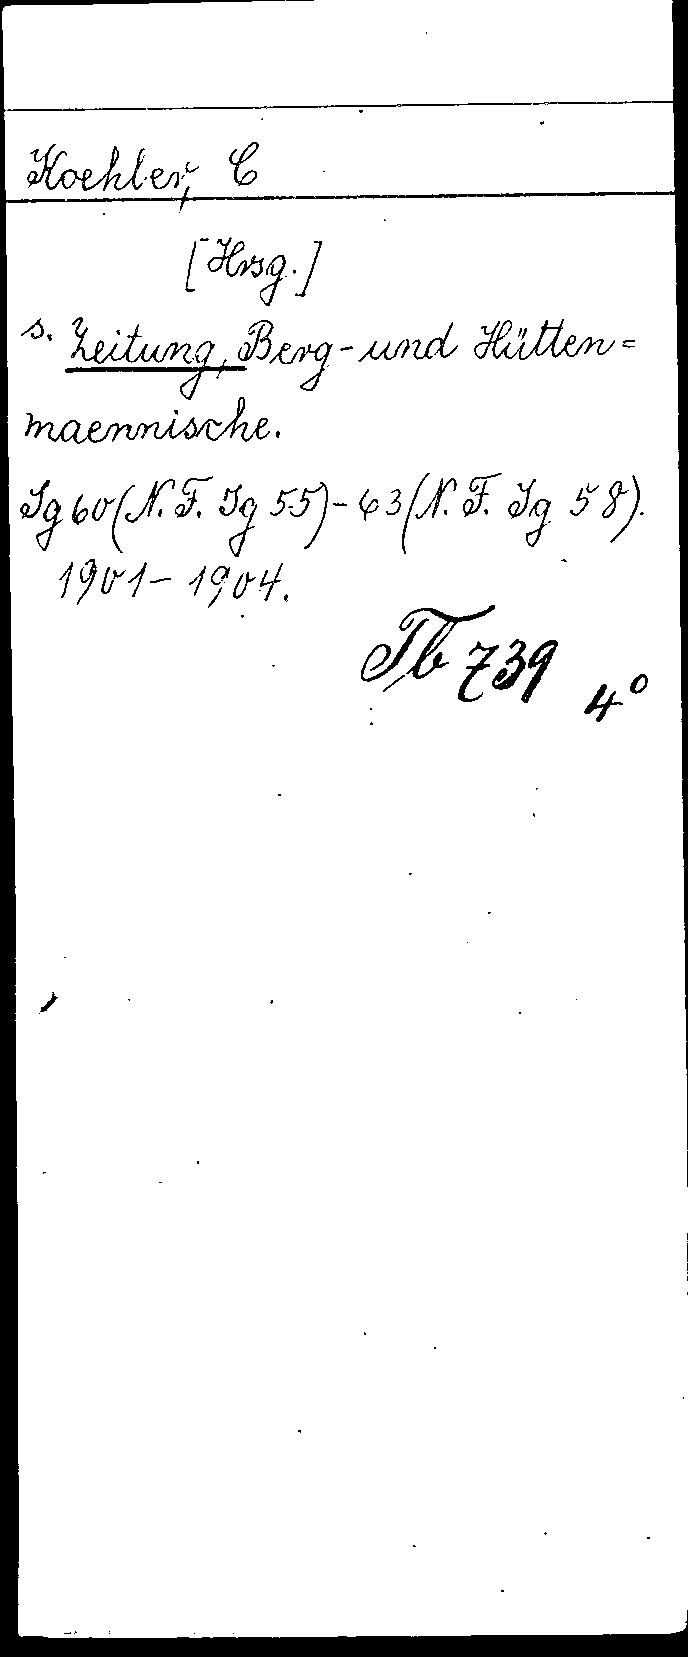 Koehler, C
[Hrsg.]
s. Zeitung, Berg- und Hütten=
maennische.
Jg 60 (N. F. Jg 55) - 63 (N. F. Jg 58).
1901 - 1904.
Tb 739 4°